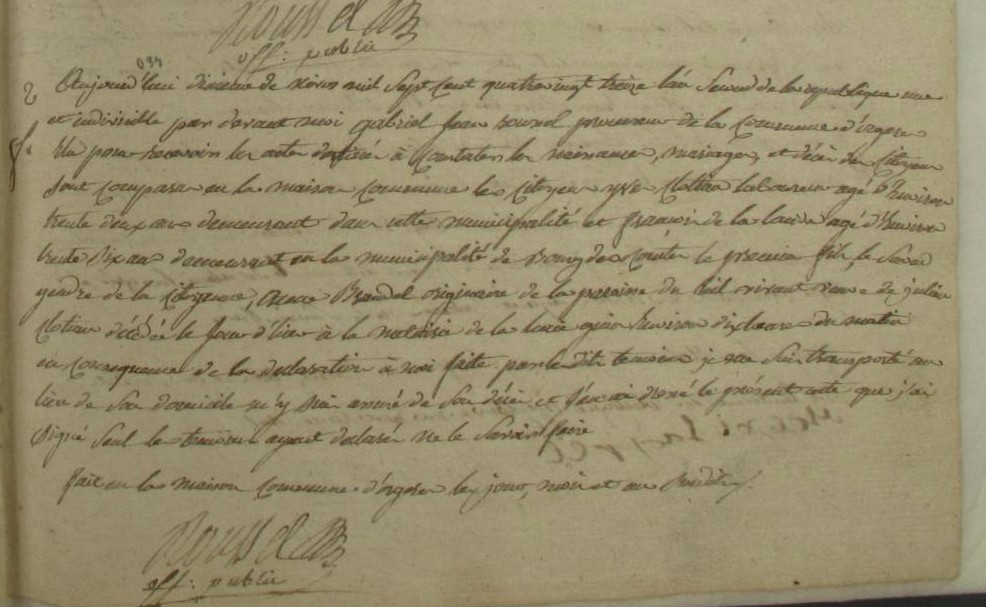 Roussel
off: public
Aujourd'hui dixieme de nivos mil sept cent quatre vingt treize l'an second de la republique une
et indivisible par devant moi gabriel jean roussel procureur de la Commune d'orgere
Elu pour recevoir les actes destinés à Constater les naissances, mariages, et décès des Citoyens
sont Comparu en la maison Commune les Citoyens yve Clotiau laboureur agé d'Environ
trente deux ans demeurant dans cette municipalité et francoi de la agé d'Environ
trente six ans demeurant en la municipalité de bourg des Comtes le premier fils, le second
gendre de la Citoyenne, originaire de la paroisse du vivant veuve de julien
Clotiau décédée le jour d'hier à la metairie de la Environ dix heures du matin
en Consequence de la declaration à moi faitte par les dit temoins je me suis transporté au
lieu de son domicile m'y suis assuré de son décès et j'en ai dressé le présent acte que j'ai
signé seul les temoins ayant declaré ne le savoir faire
fait en la maison Commune d'orgere les jour, mois et an susdits
Roussel
off: public